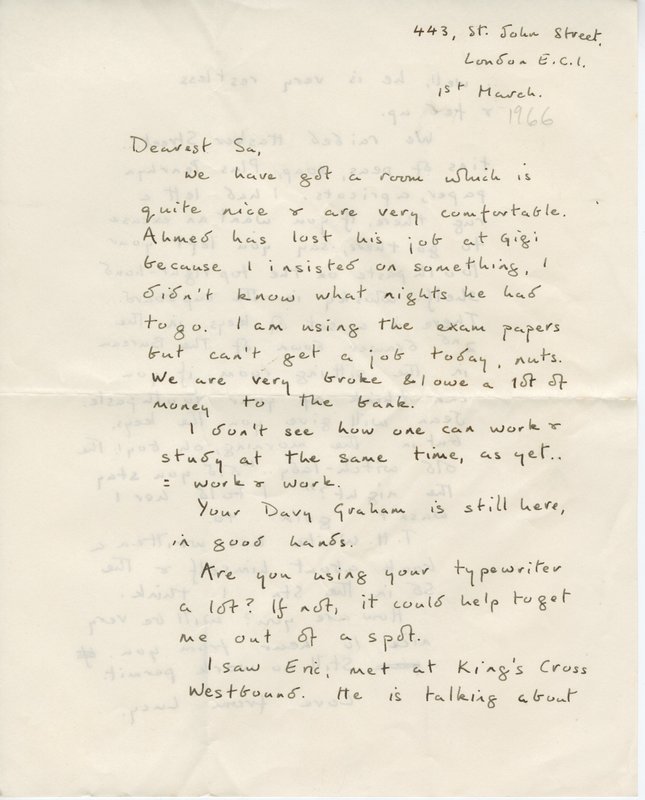 443, St. John Street,
London E.C.1.
1st March.
1966
Dearest Sa,
We have got a room which is
quite nice & are very comfortable.
Ahmed has lost his job at Gigi
because I insisted on something, I
didn't know what nights he had
to go. I am using the exam papers
but can't get a job today, nuts.
We are very broke & I owe a lot of
money to the bank.
I don't see how one can work &
study at the same time, as yet..
= work & work.
Your Davy Graham is still here,
in good hands.
Are you using your typewriter
a lot? If not, it could help to get
me out of a spot.
I saw Eric, met at King's Cross
Westbound. He is talking about